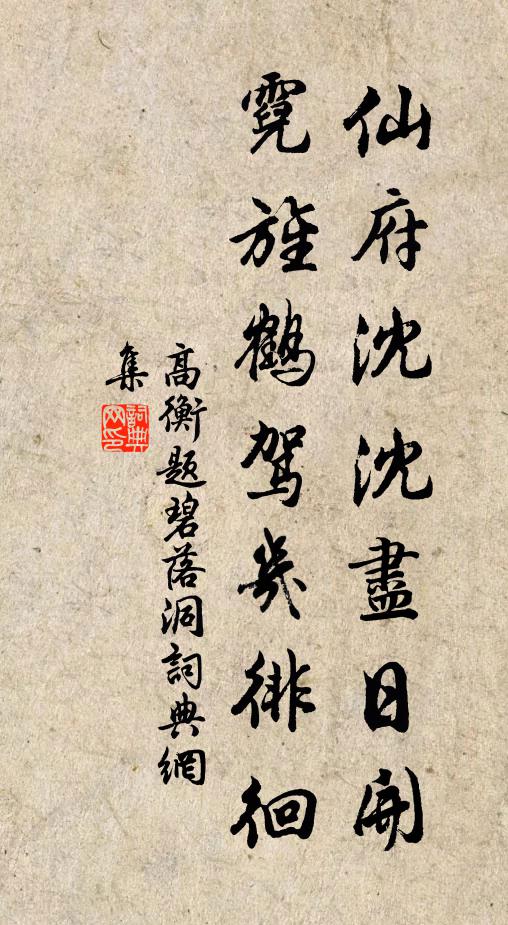 仙府沈沈盡日開
霓旌鶴駕幾徘徊
高衡題碧落洞詞典網
集
詞典
网印